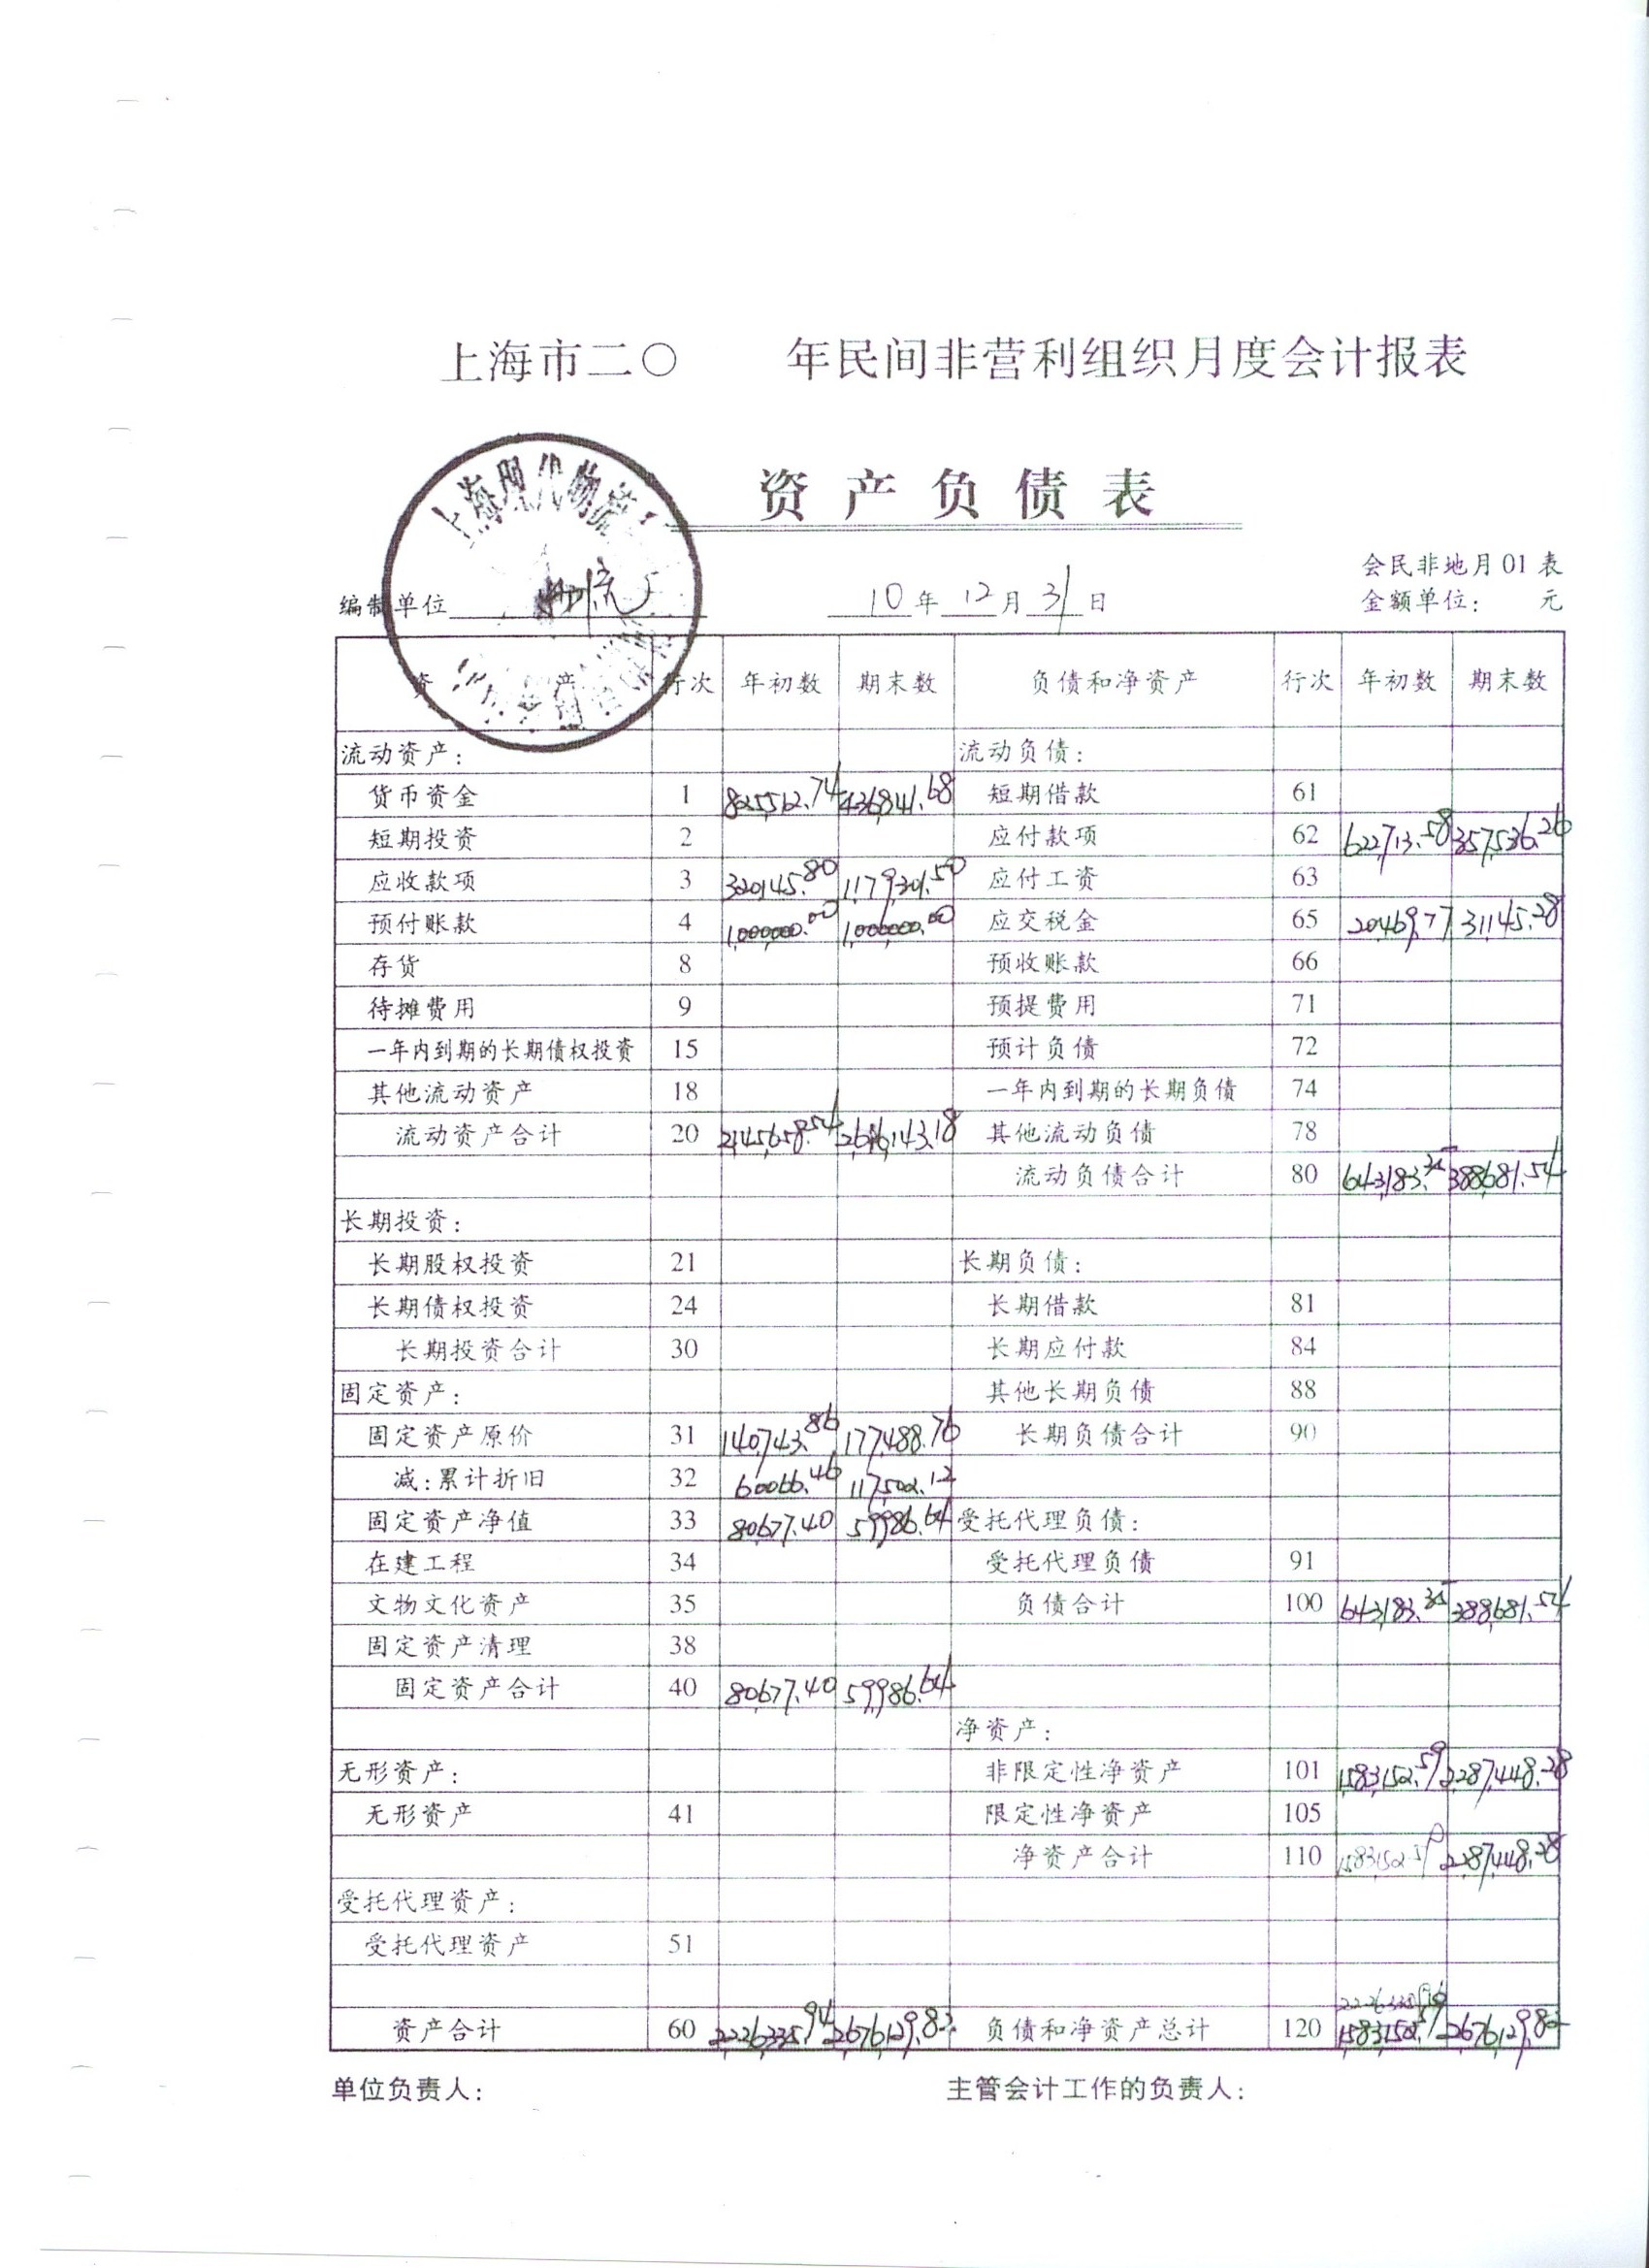 上海市二〇 年民间非营利组织月度会计报表
上海现代物流
资产负债表
会民非地月01表
编制单位 10年12月31日 金额单位: 元
资产 行次 年初数 期末数 负债和净资产 行次 年初数 期末数
流动资产: 流动负债:
货币资金 1 825,512.74 436,841.68 短期借款 61
短期投资 2 应付款项 62 622,713.58 357,536.26
应收款项 3 320,145.80 1,179,301.50 应付工资 63
预付账款 4 1,000,000.00 1,000,000.00 应交税金 65 20,469.77 31,145.28
存货 8 预收账款 66
待摊费用 9 预提费用 71
一年内到期的长期债权投资 15 预计负债 72
其他流动资产 18 一年内到期的长期负债 74
流动资产合计 20 2,145,658.54 2,616,143.18 其他流动负债 78
流动负债合计 80 643,183.35 388,681.54
长期投资:
长期股权投资 21 长期负债:
长期债权投资 24 长期借款 81
长期投资合计 30 长期应付款 84
固定资产: 其他长期负债 88
固定资产原价 31 140,743.86 177,488.76 长期负债合计 90
减:累计折旧 32 60,066.46 117,502.12
固定资产净值 33 80,677.40 59,986.64 受托代理负债:
在建工程 34 受托代理负债 91
文物文化资产 35 负债合计 100 643,183.35 388,681.54
固定资产清理 38
固定资产合计 40 80,677.40 59,986.64
净资产:
无形资产: 非限定性净资产 101 1,583,152.59 2,287,448.28
无形资产 41 限定性净资产 105
净资产合计 110 1,583,152.59 2,287,448.28
受托代理资产:
受托代理资产 51
2226335.94
资产合计 60 2,226,335.94 2,676,129.82 负债和净资产总计 120 1,583,152.59 2,676,129.82
单位负责人: 主管会计工作的负责人: